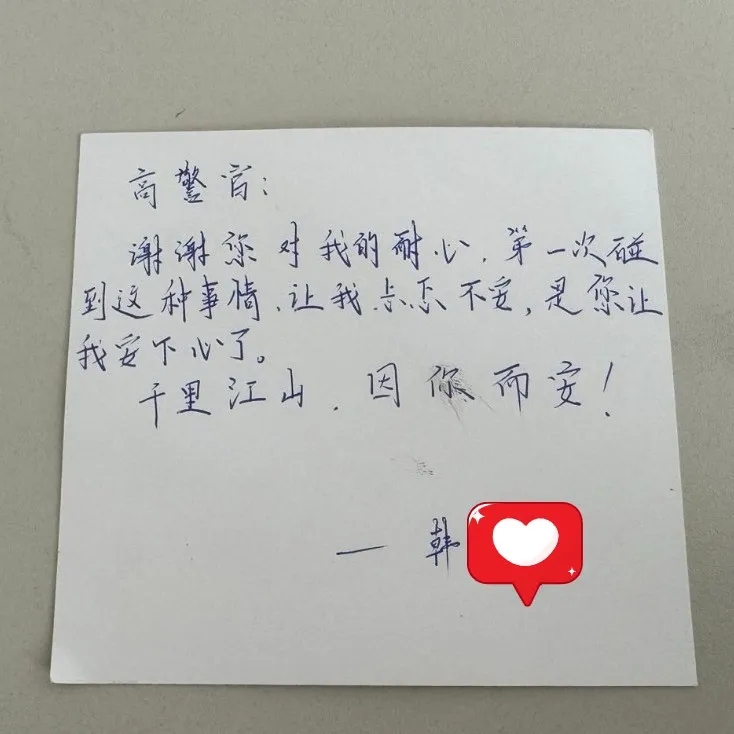 高警官：
谢谢您对我的耐心，第一次碰
到这种事情，让我忐忑不安，是您让
我安下心了。
千里江山，因你而安！
—韩